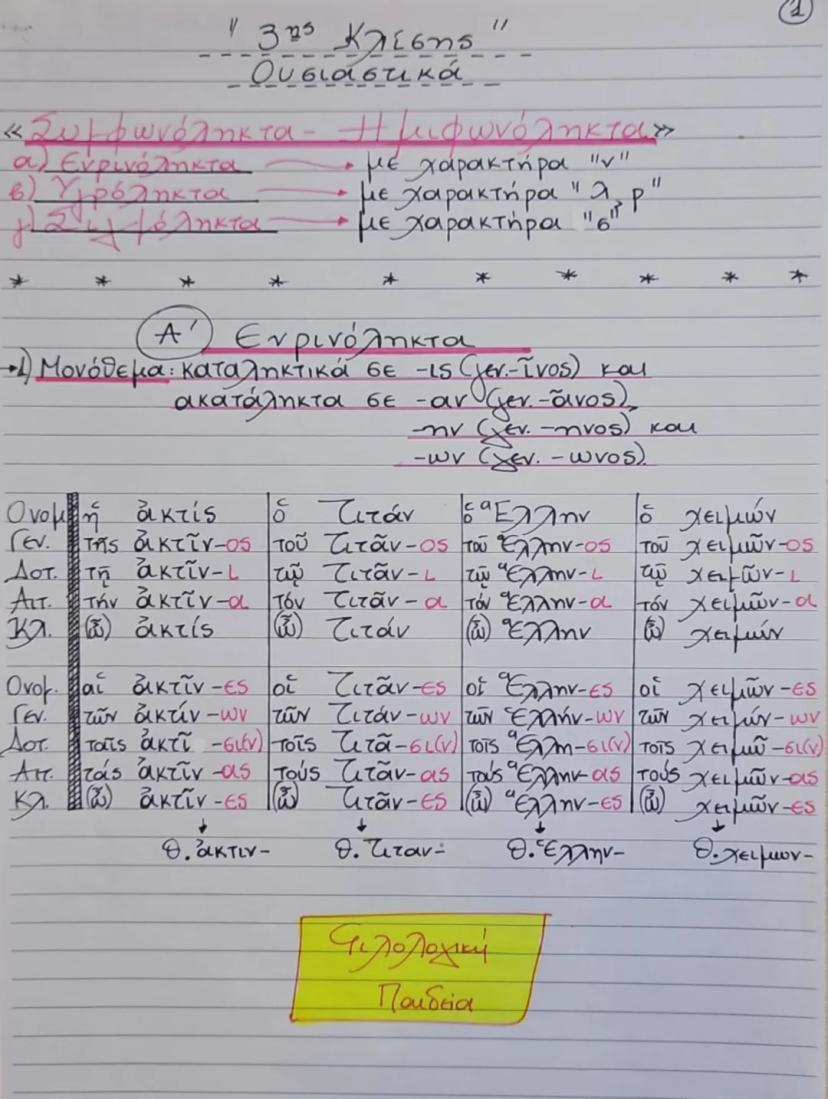 1
" 3ης Κλίσης "
Ουσιαστικά
« Συμφωνόληκτα - Ημιφωνόληκτα »
α) Ενρινόληκτα → με χαρακτήρα "ν"
β) Υγρόληκτα → με χαρακτήρα "λ, ρ"
γ) Σιγμόληκτα → με χαρακτήρα "σ"
* * * * * * * * * *
Α' Ενρινόληκτα
→1) Μονόθεμα: καταληκτικά σε -ις (γεν.-ῖνος) και
ακατάληκτα σε -αν (γεν.-ᾶνος),
-ην (γεν. -ηνος) και
-ων (γεν. -ωνος).
Ονομ. ἡ ἀκτίς ὁ Τιτάν ὁ Ἕλλην ὁ χειμών
Γεν. τῆς ἀκτῖν-ος τοῦ Τιτᾶν-ος τοῦ Ἕλλην-ος τοῦ χειμῶν-ος
Δοτ. τῇ ἀκτῖν-ι τῷ Τιτᾶν-ι τῷ Ἕλλην-ι τῷ χειμῶν-ι
Αιτ. τήν ἀκτῖν-α τόν Τιτᾶν-α τόν Ἕλλην-α τόν χειμῶν-α
Κλ. (ὦ) ἀκτίς (ὦ) Τιτάν (ὦ) Ἕλλην (ὦ) χειμών
Ονομ. αἱ ἀκτῖν-ες οἱ Τιτᾶν-ες οἱ Ἕλλην-ες οἱ χειμῶν-ες
Γεν. τῶν ἀκτίν-ων τῶν Τιτάν-ων τῶν Ἑλλήν-ων τῶν χειμών-ων
Δοτ. ταῖς ἀκτῖ-σι(ν) τοῖς Τιτᾶ-σι(ν) τοῖς Ἕλλη-σι(ν) τοῖς χειμῶ-σι(ν)
Αιτ. τάς ἀκτῖν-ας τούς Τιτᾶν-ας τούς Ἕλλην-ας τούς χειμῶν-ας
Κλ. (ὦ) ἀκτῖν-ες (ὦ) Τιτᾶν-ες (ὦ) Ἕλλην-ες (ὦ) χειμῶν-ες
θ. ἀκτιν- θ. Τιταν- θ. Ἑλλην- θ. χειμων-
Φιλολογική
Παιδεία